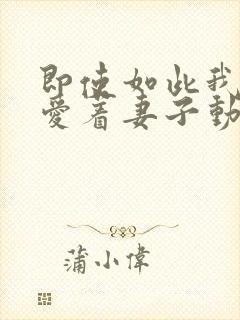 即使如此我
愛着妻子動
蒲小偉